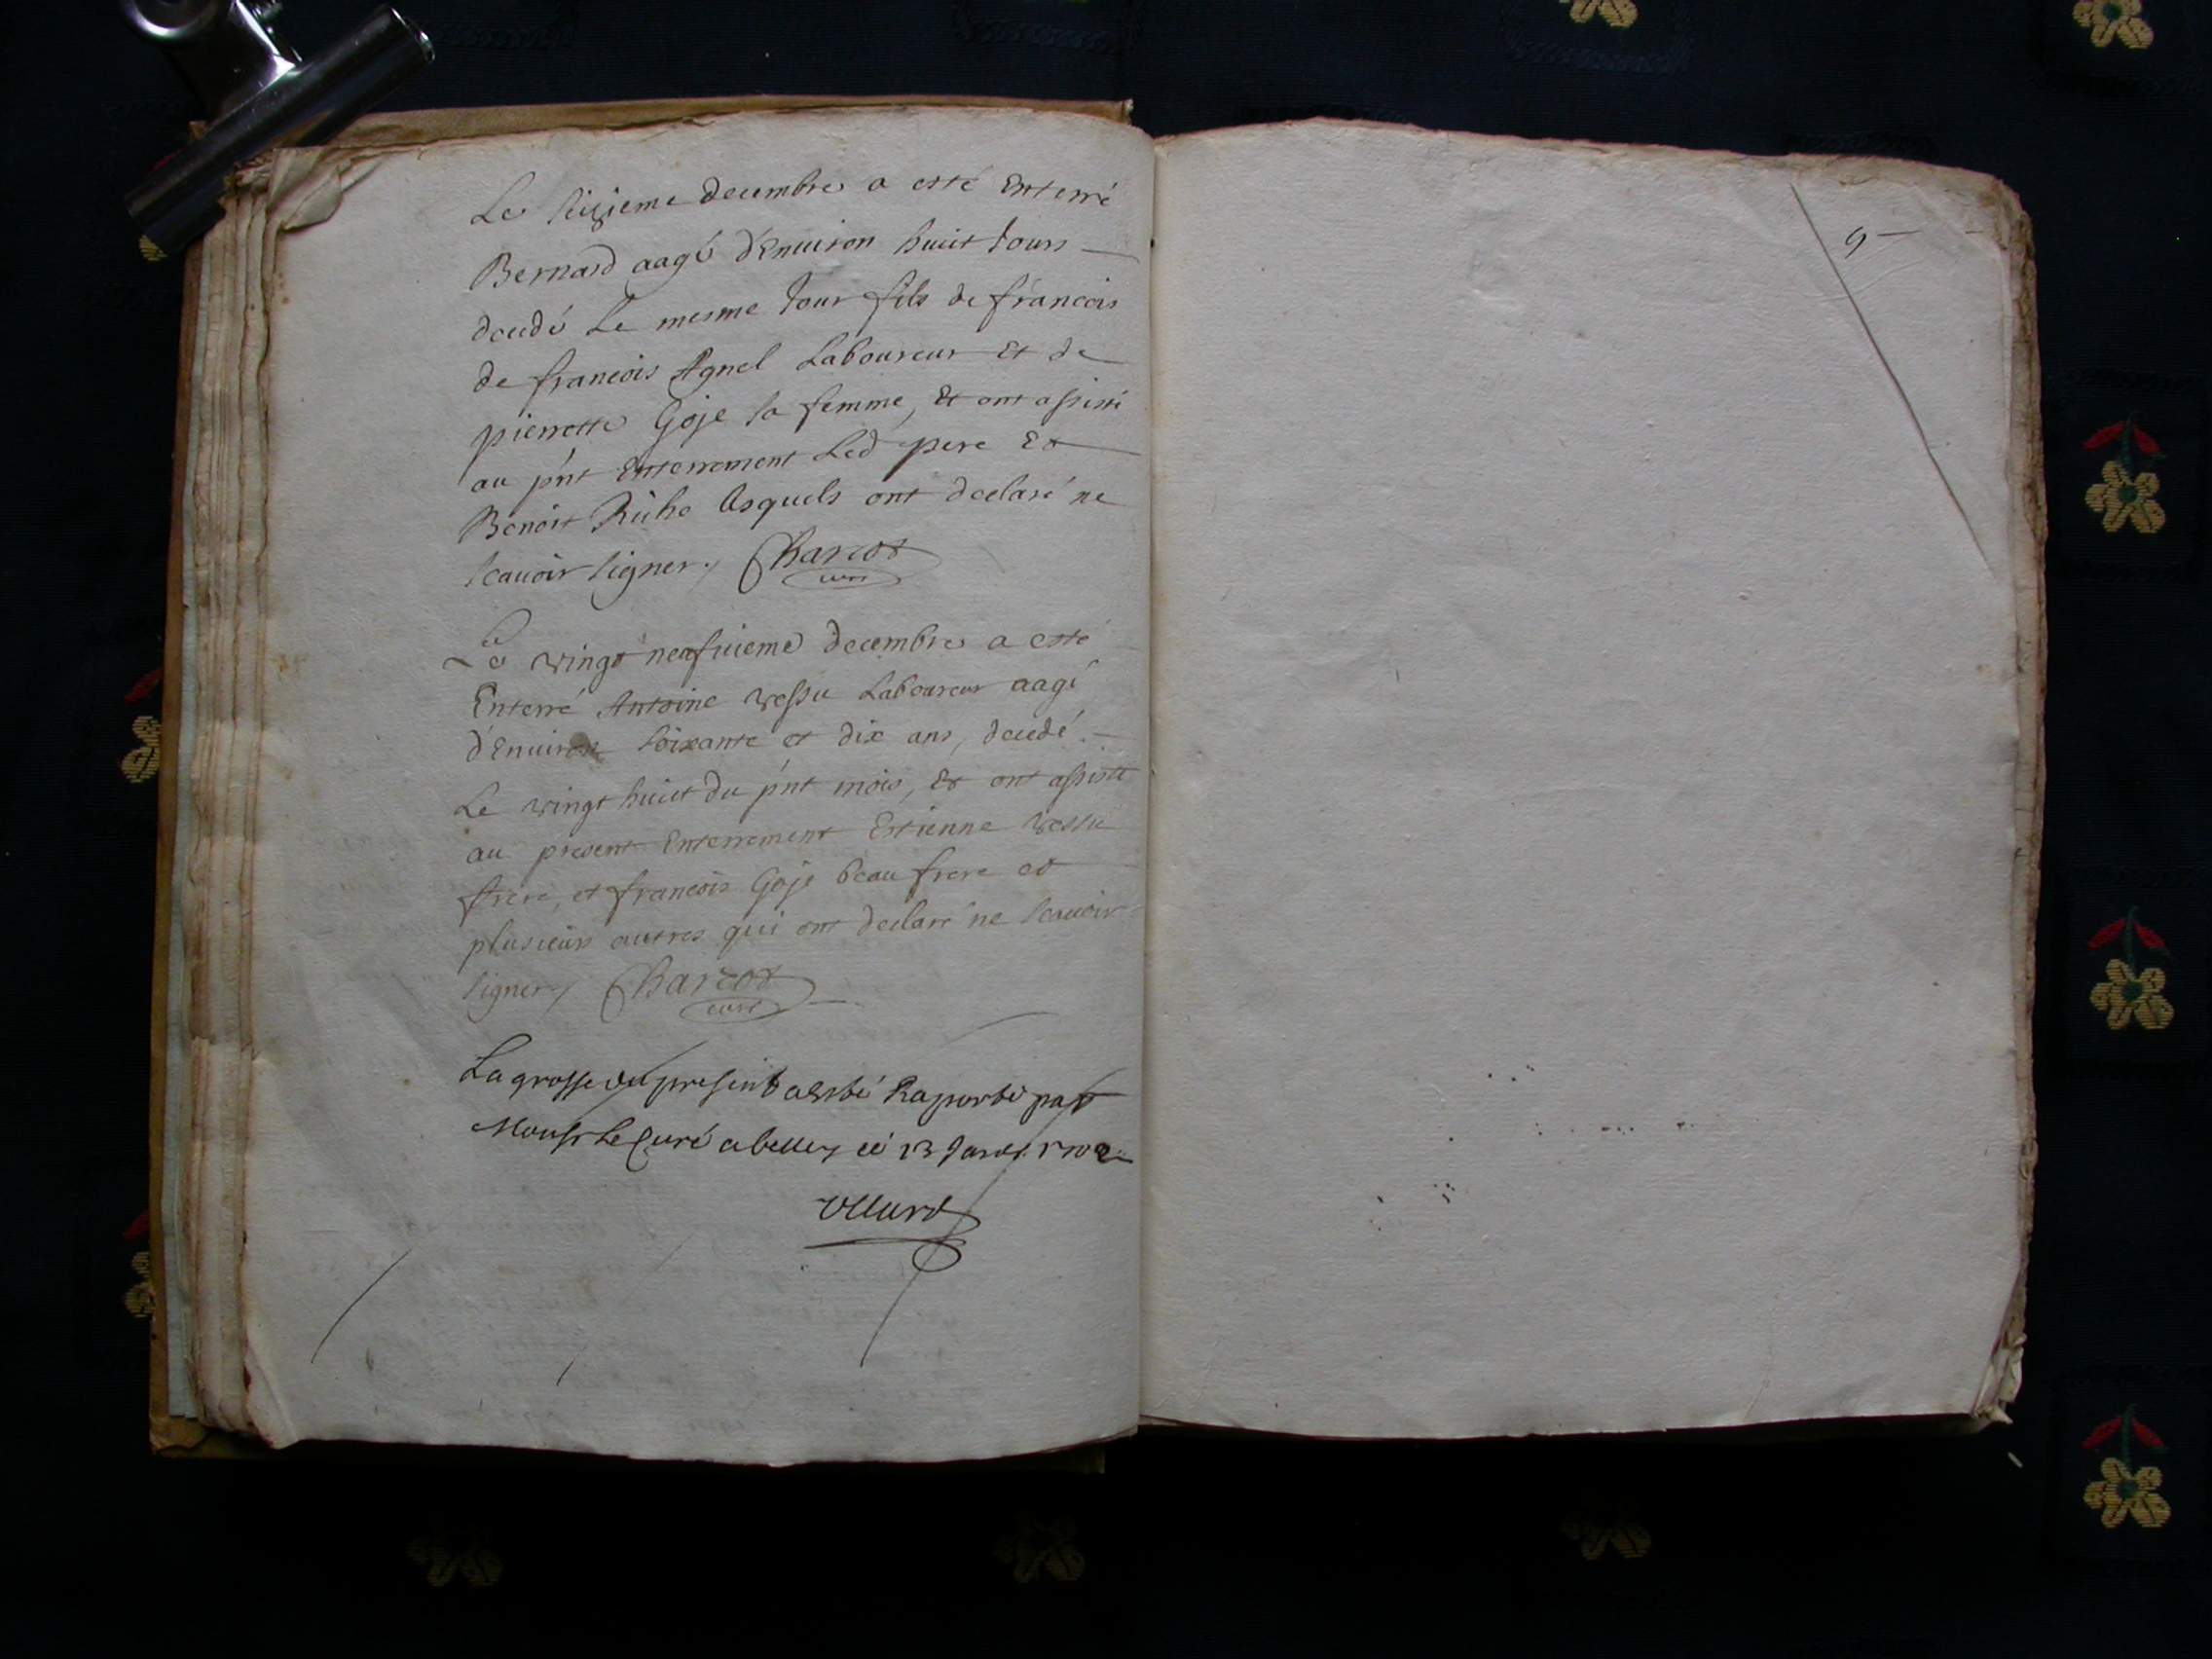 Le sizieme decembre a esté Enterré
Bernard aagé d'Enuiron huict Jours
decedé Le mesme Jour fils de francois
de francois Agnel Laboureur Et de
pierrette Goje sa femme, Et ont assisté
au pñt Enterrement Led pere Et
Benoit Ruhe lesquels ont declaré ne
scauoir signer./ Charcot
curé
Le vingt neufuieme decembre a esté
Enterré Antoine vessu Laboureur aagé
d'Enuiron soixante et dix ans, decedé
Le vingt huict du pñt mois, Et ont assisté
au present Enterrement Estienne vessu
frere, et francois Goje beau frere et
plusieurs autres qui ont declaré ne scauoir
signer./ Charcot
curé
La grosse du present a esté Raporté par
Monsr le Curé a belley ce 13 Janvr 1702
9